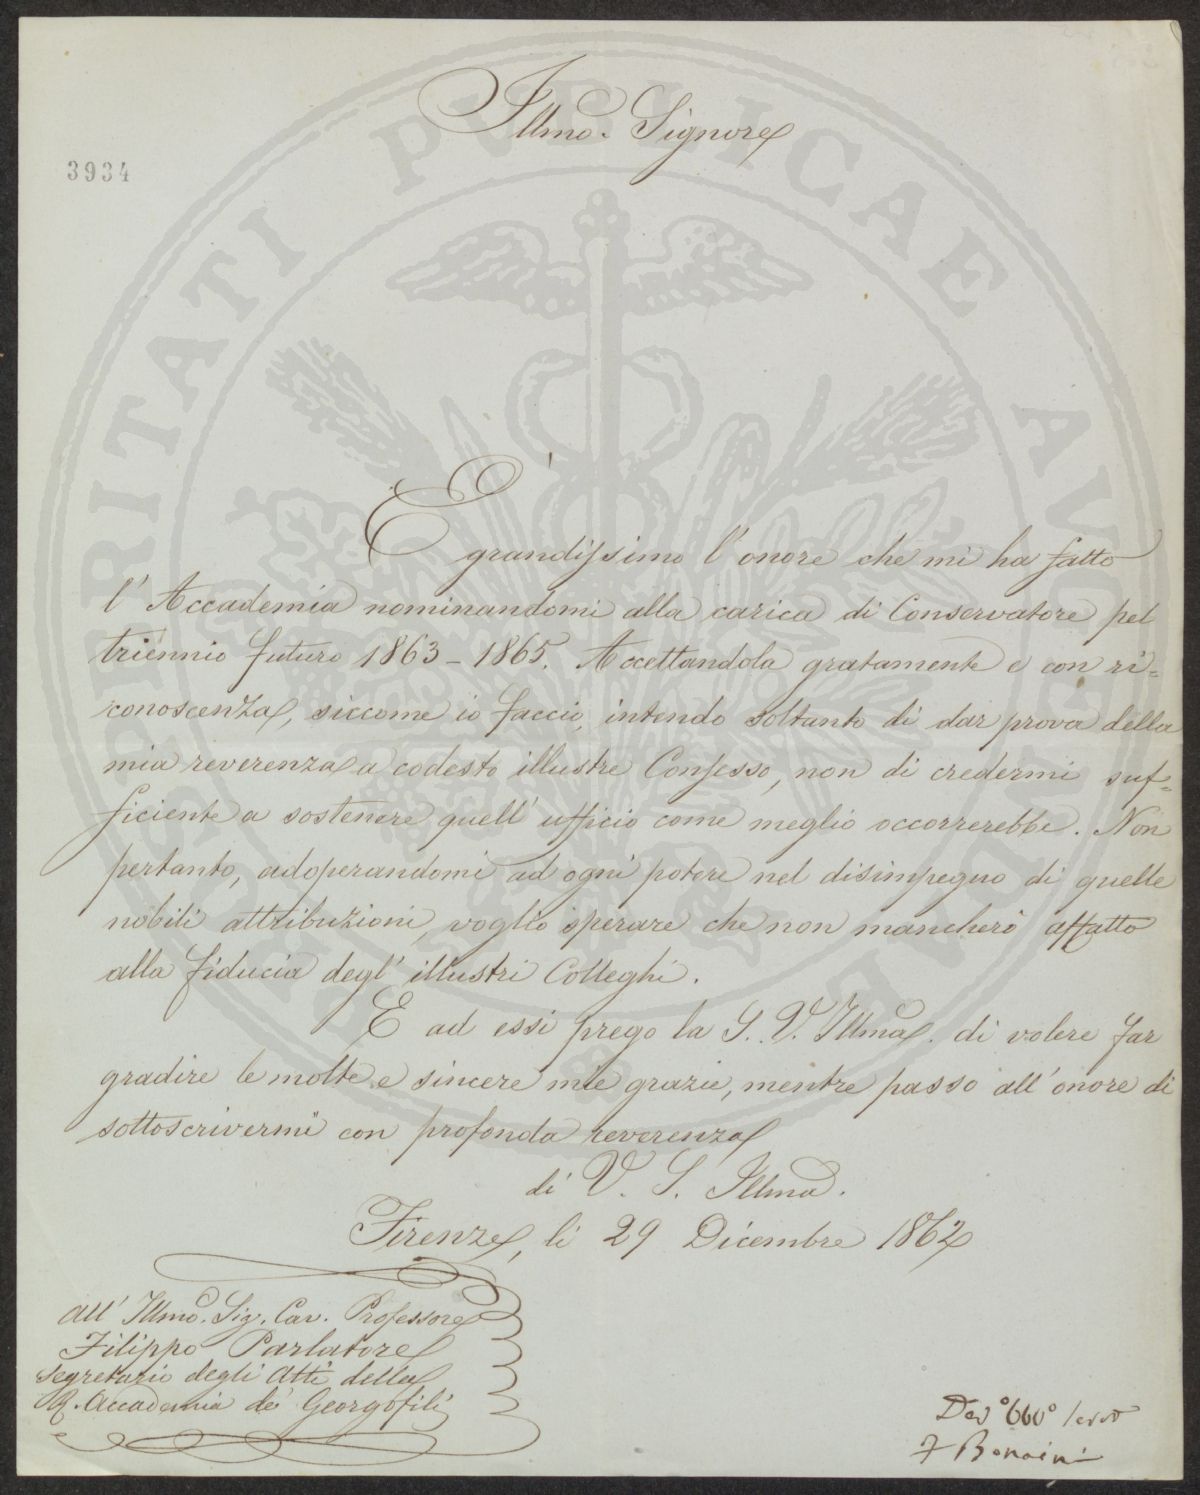 Illmo. Signore
3934
È grandissimo l'onore che mi ha fatto
l'Accademia nominandomi alla carica di Conservatore pel
triennio futuro 1863-1865. Accettandola gratamente e con ri=
conoscenza, siccome io faccio, intendo soltanto di dar prova della
mia reverenza a codesto illustre Consesso, non di credermi suf=
ficiente a sostenere quell'ufficio come meglio occorrerebbe. Non
pertanto, adoperandomi ad ogni potere nel disimpegno di quelle
nobili attribuzioni, voglio sperare che non mancherò affatto
alla fiducia degl'illustri Colleghi.
E ad essi prego la S. V. Illma. di volere far
gradire le molte e sincere mie grazie, mentre passo all'onore di
sottoscrivermi con profonda reverenza
di V. S. Illma.
Firenze, li 29 Dicembre 1862
All'Illmo. Sig. Cav. Professore
Filippo Parlatore
Segretario degli Atti della
R. Accademia dei Georgofili
Dev.o
F Bonaini
PROSPERITATI PUBLICAE AUGENDAE